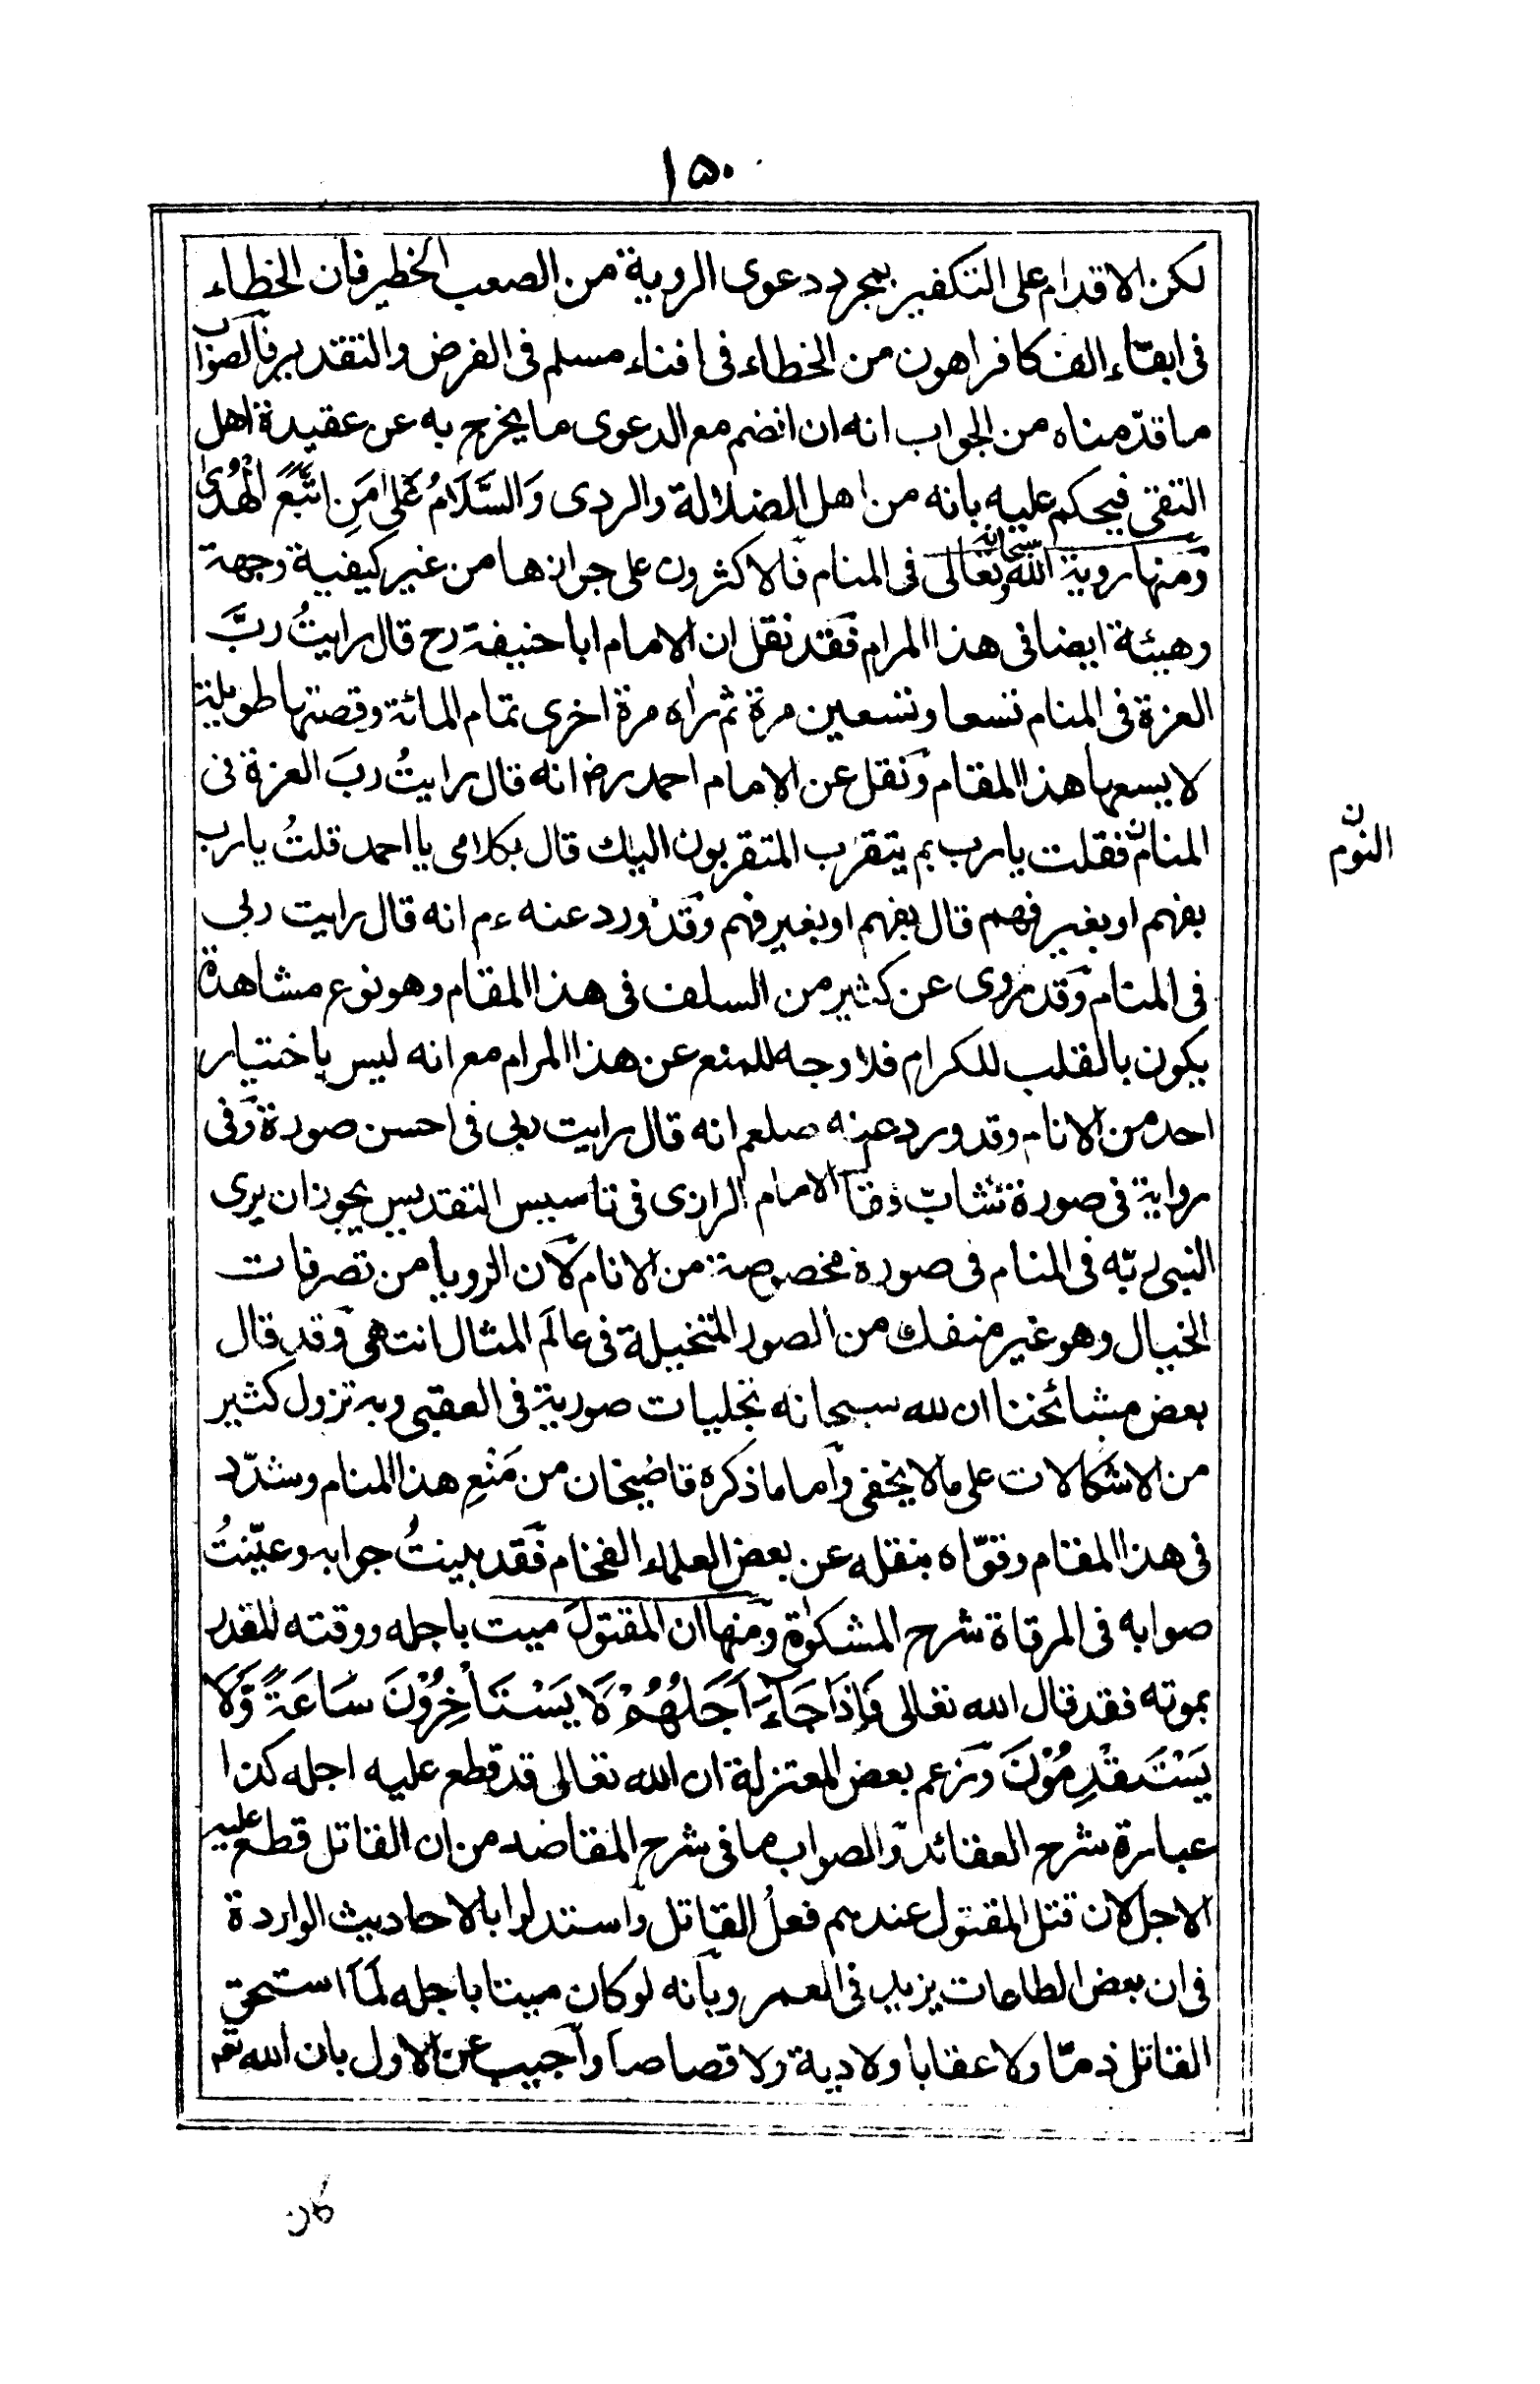 ١٥٠
لكن الاقدام على التكفير بمجرد دعوى الروية من الصعب الخطير فان الخطاء
فى ابقاء الف كافر اهون من الخطاء فى افناء مسلم فى الفرض والتقدير فالصواب
ما قدّمناه من الجواب انه ان انضم مع الدعوى ما يخرج به عن عقيدة اهل
التقى فيحكم عليه بانه من اهل الضلالة والردى وَالسَّلَامُ عَلٰى مَنِ اتَّبَعَ الْهُدٰى
ومنها روية الله سبحانه وتعالى فى المنام فالاكثرون على جوازها من غير كيفية وجهة
وهيئة ايضا فى هذا المرام فقد نقل ان الامام ابا حنيفة رح قال رايتُ ربَّ
العزة فى المنام تسعا وتسعين مرة ثم راه مرة اخرى تمام المائة وقصتها طويلة
لا يسعها هذا المقام ونقل عن الامام احمد رض انه قال رايتُ ربَ العزة فى
المنام ن فقلت يا رب بم يتقرب المتقربون اليك قال بكلامى يا احمد قلتُ يا رب
ن النوم
بفهم او بغير فهم قال بفهم او بغير فهم وقد ورد عنه ءم انه قال رايت ربى
فى المنام وقد روى عن كثير من السلف فى هذا المقام وهو نوع مشاهدة
يكون بالقلب للكرام فلا وجه للمنع عن هذا المرام مع انه ليس باختيار
احد من الانام وقد ورد عنه صلعم انه قال رايت ربى فى احسن صورة وفى
رواية فى صورة شابّ فقا الامام الرازى فى تاسيس التقديس يجوز ان يرى
النبى ربّه فى المنام فى صورة مخصوصة من الانام لان الرويا من تصرفات
الخيال وهو غير منفك من الصور المتخيلة فى عالَم المثال انتهى وقد قال
بعض مشائخنا ان لله سبحانه تجليات صورية فى العقبى وبه تزول كثير
من الاشكالات على ما لا يخفى واما ما ذكره قاضيخان من مَنْعِ هذا المنام وشدّد
فى هذا المقام وقوّاه بنقله عن بعض العلماء الفخام فقد بينتُ جوابه وعيّنتُ
صوابه فى المرقاة شرح المشكوٰة ومنها ان المقتول ميت باجله ووقته المقدر
بموته فقد قال الله تعالى فَاِذَا جَآءَ اَجَلُهُمْ لَا يَسْتَأْخِرُوْنَ سَاعَةً وَّلَا
يَسْتَقْدِمُوْنَ وزعم بعض المعتزلة ان الله تعالى قد قطع عليه اجله كذا
عبارة شرح العقائد والصواب ما فى شرح المقاصد من ان القاتل قطع عليه
الاجل لان قتل المقتول عندهم فعلُ القاتل واستدلوا بالاحاديث الواردة
فى ان بعض الطاعات يزيد فى العمر وبانه لو كان ميتا باجله لَمَا استحق
القاتل ذمّا ولا عقابا ولا دية ولا قصاصا واجيب عن الاول بان الله تعـ
كان